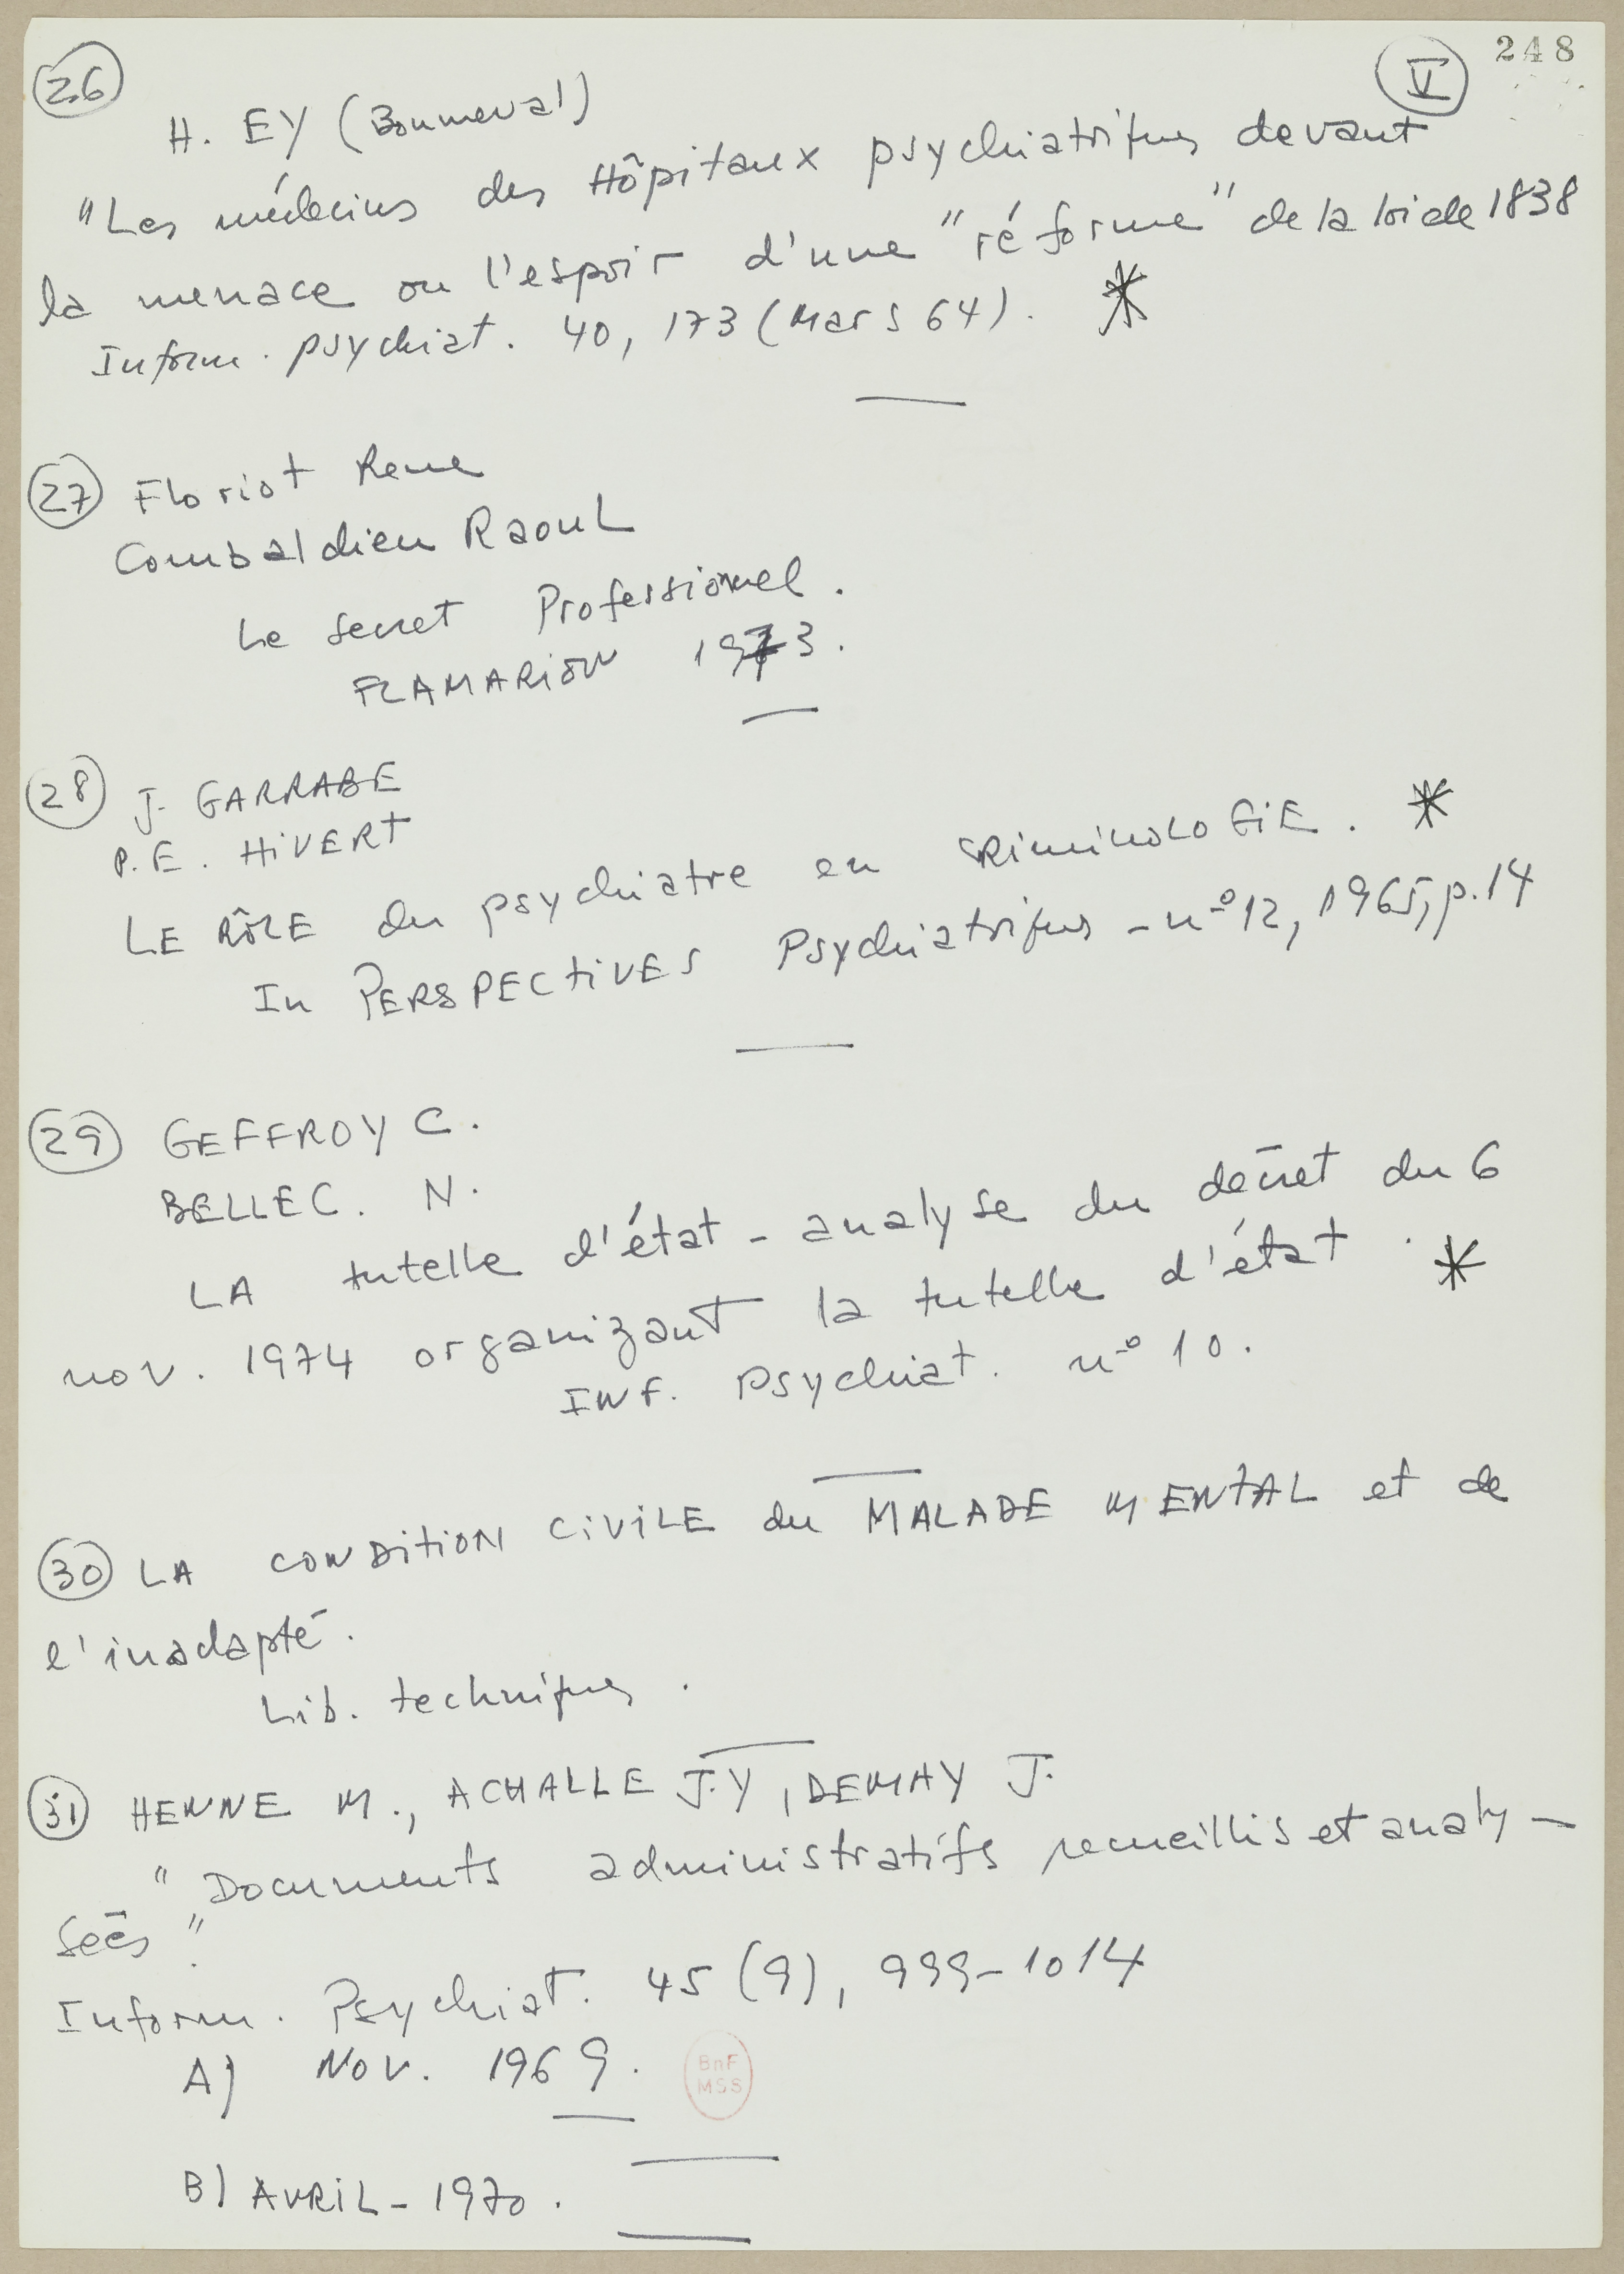 26
V
248
H. EY (Bonneval)
"Les médecins des Hôpitaux psychiatriques devant
la menace ou l'espoir d'une "réforme" de la loi de 1838
Inform. psychiat. 40, 173 (Mars 64). *
27 Floriot Rene
Combaldieu Raoul
Le secret Professionnel.
FLAMARION 1973.
28 J. GARRABE
P.E. HIVERT
LE RÔLE du psychiatre en CRIMINOLOGIE. *
In PERSPECTIVES Psychiatriques - nº 12, 1965, p. 14
29 GEFFROY C.
BELLEC. N.
LA tutelle d'état - analyse du décret du 6
nov. 1974 organizant la tutelle d'état. *
INF. Psychiat. nº 10.
30 LA CONDITION CIVILE du MALADE MENTAL et de
l'inadapté.
Lib. techniques.
31 HENNE M., ACHALLE J.Y, DEMAY J.
"Documents administratifs recueillis et analy-
sées".
Inform. Psychiat. 45 (9), 999-1014
A) Nov. 1969.
BnF
MSS
B) AVRIL - 1970.